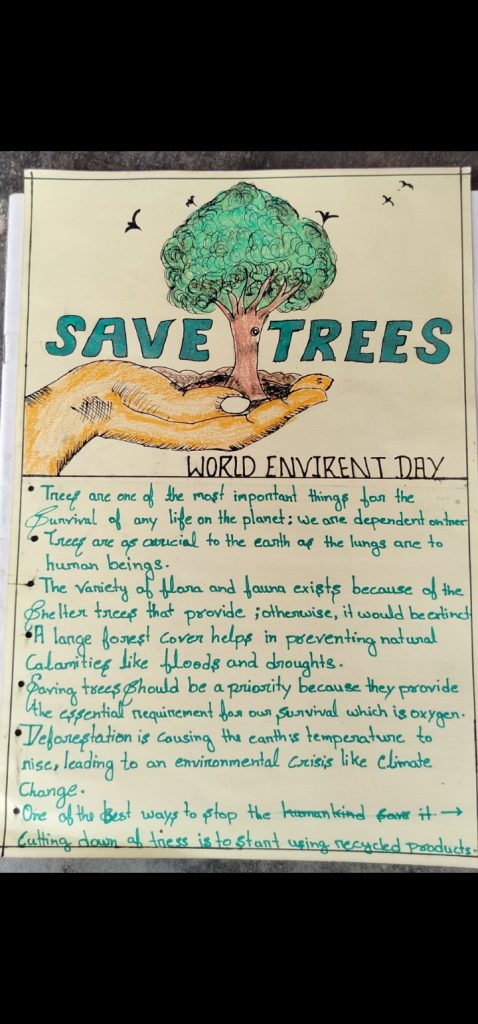 SAVE TREES
WORLD ENVIRENT DAY
• Trees are one of the most important things for the
Survival of any life on the planet; we are dependent on tree
• Trees are as crucial to the earth as the lungs are to
human beings.
• The variety of flora and fauna exists because of the
Shelter trees that provide ; otherwise, it would be extinct
• A large forest cover helps in preventing natural
Calamities like floods and droughts.
• Saving trees Should be a priority because they provide
the essential requirement for our survival which is oxygen.
• Deforestation is causing the earth's temperature to
rise, leading to an environmental Crisis like Climate
Change.
• One of the Best ways to stop the humankind save it →
Cutting down of tress is to start using recycled products.